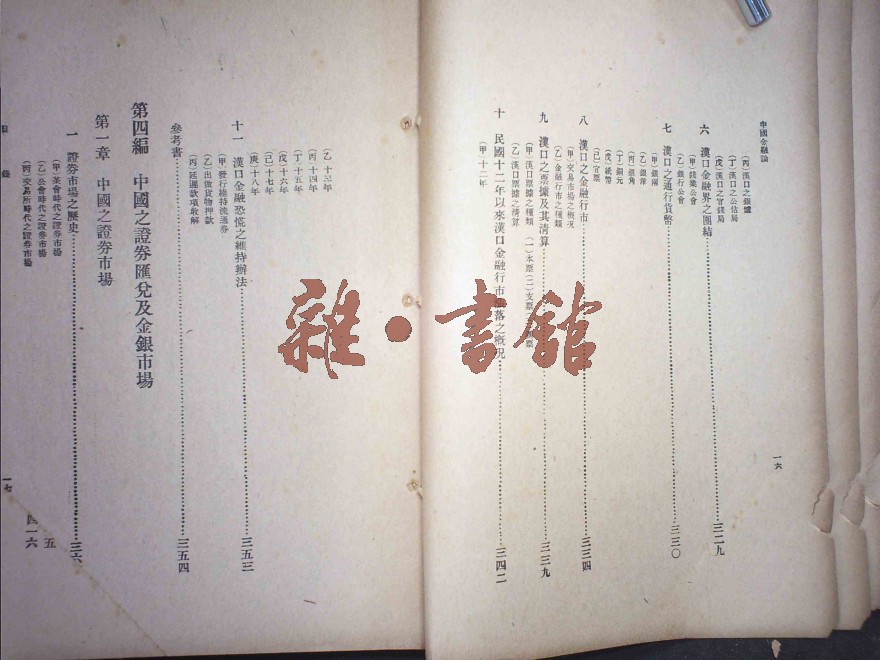 中國金融論
(丙)漢口之銀爐
(丁)漢口之公估局
(戊)漢口之官錢局
六 漢口金融界之團結……三二九
(甲)錢業公會
(乙)銀行公會
七 漢口之通行貨幣……三三〇
(甲)銀兩
(乙)銀洋
(丙)銀角
(丁)銅元
(戊)紙幣
(己)官票
八 漢口之金融行市……三三四
(甲)交易市場之概況
(乙)金融行市之種類
九 漢口之票據及其清算……三三九
(甲)漢口票據之種類 (一)本票(二)支票
(乙)漢口票據之清算
十 民國十二年以來漢口金融行市 落之概況……三四二
(甲)十二年
一六
(乙)十三年
(丙)十四年
(丁)十五年
(戊)十六年
(己)十七年
(庚)十八年
十一 漢口金融恐慌之維持辦法……三五三
(甲)發行維持流通券
(乙)出做貨物押款
(丙)延遲款項收解
參考書……三五四
第四編 中國之證券匯兌及金銀市場
第一章 中國之證券市場
一 證券市場之歷史……三六
(甲)茶會時代之證券市場
(乙)公會時代之證券市場
(丙)交易所時代之證券市場
五
四一六
目 錄
一七
雜·書館